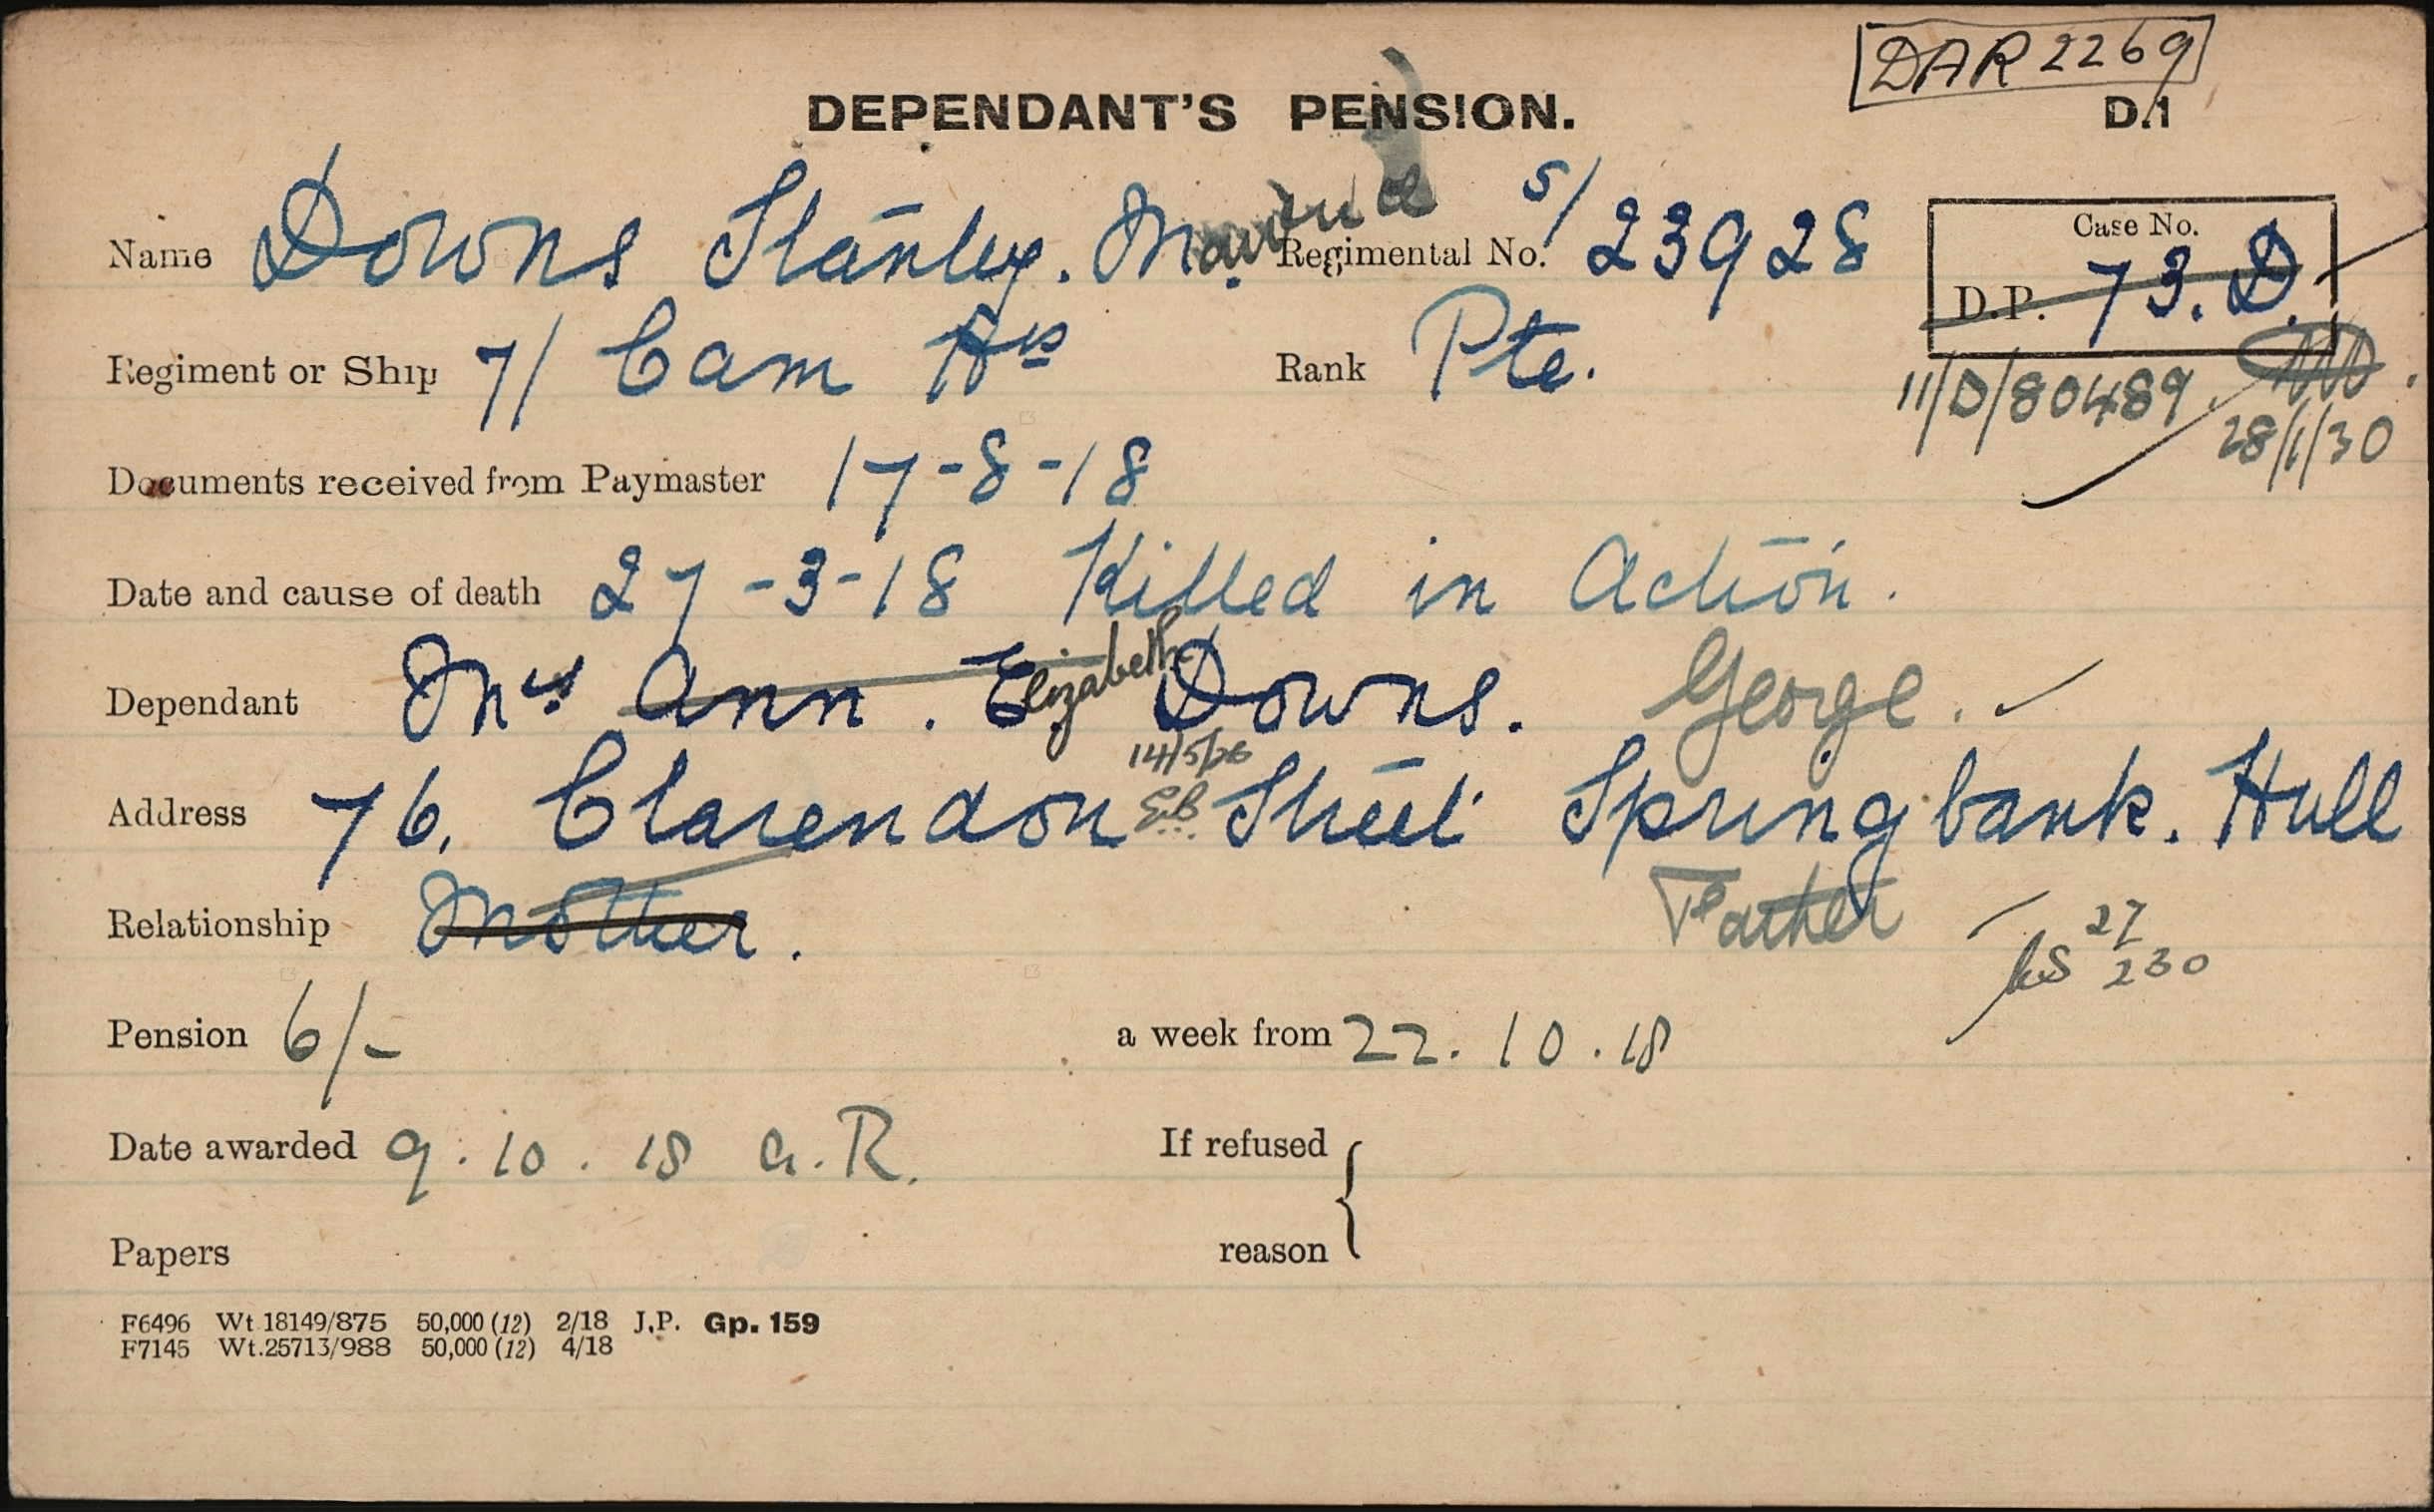 DAR 2269
DEPENDANT'S PENSION.
D.1
Name Downs Stanley. Regimental No. S/ 23928
Case No.
D.P. 73.D.
Regiment or Ship 7/ Cam Hrs Rank Pte.
11/D/80489.
28/1/30
Documents received from Paymaster 17-8-18
Date and cause of death 27-3-18 Killed in Action.
Dependant Mrs Ann. Elizabeth Downs. George.
14/5/26
Address 76. Clarendon EB Street Springbank. Hull
Relationship Mother. Father
27
230
Pension 6/- a week from 22.10.18
Date awarded 9.10.18 a.R. If refused
Papers reason
F6496 Wt.18149/875 50,000 (12) 2/18 J.P. Gp. 159
F7145 Wt.25713/988 50,000 (12) 4/18